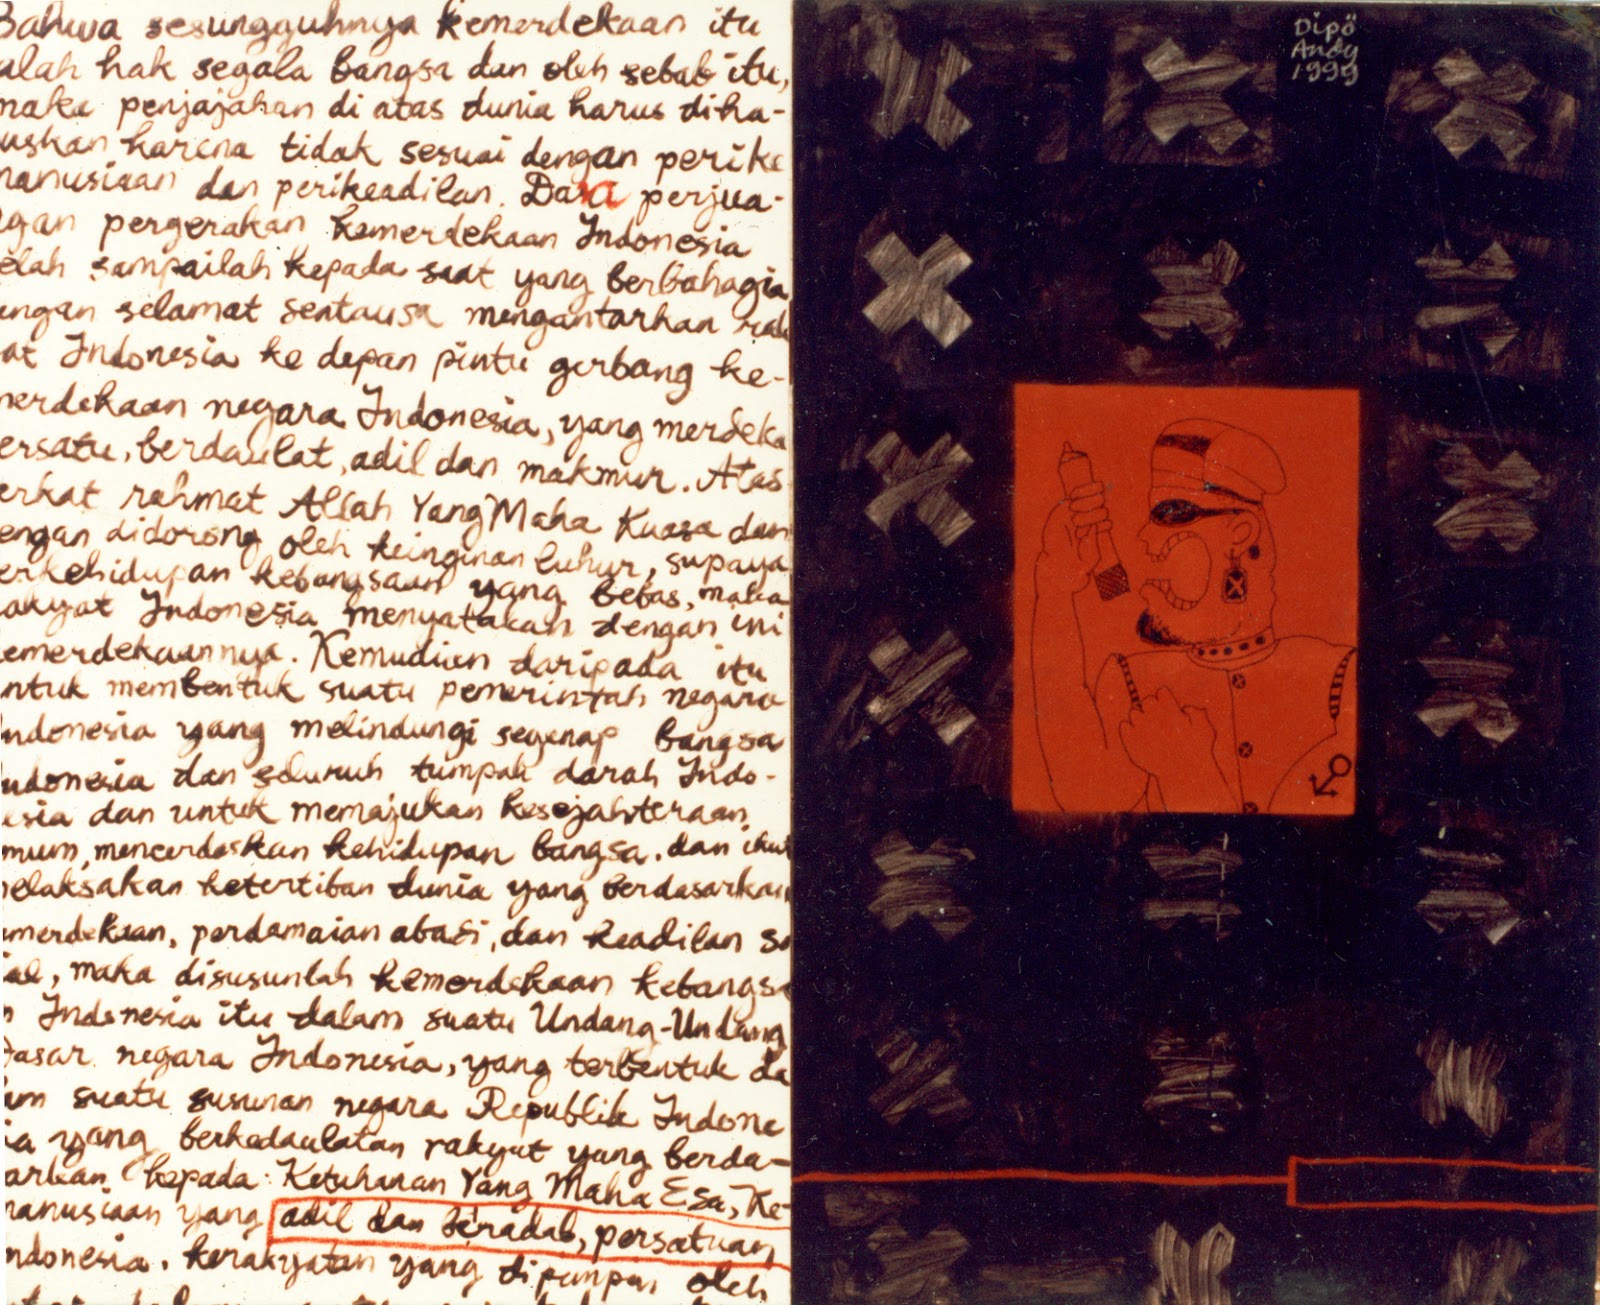 Bahwa sesungguhnya kemerdekaan itu
alah hak segala bangsa dan oleh sebab itu,
maka penjajahan di atas dunia harus diha-
uskan karena tidak sesuai dengan perike
manusiaan dan perikeadilan. Dara perjua-
gan pergerakan kemerdekaan Indonesia
elah sampailah kepada saat yang berbahagia
engan selamat sentausa mengantarkan rak
at Indonesia ke depan pintu gerbang ke-
merdekaan negara Indonesia, yang merdeka
ersatu, berdaulat, adil dan makmur. Atas
erkat rahmat Allah Yang Maha Kuasa dan
engan didorong oleh keinginan luhur, supaya
erkehidupan kebangsaan yang bebas, maka
rakyat Indonesia menyatakan dengan ini
kemerdekaannya. Kemudian daripada itu
untuk membentuk suatu pemerintah negara
Indonesia yang melindungi segenap bangsa
Indonesia dan seluruh tumpah darah Indo-
esia dan untuk memajukan kesejahteraan
mum, mencerdaskan kehidupan bangsa, dan ikut
melaksakan ketertiban dunia yang berdasarkan
emerdekaan, perdamaian abadi, dan keadilan so
ial, maka disusunlah kemerdekaan kebangsa
n Indonesia itu dalam suatu Undang-Undang
Dasar negara Indonesia, yang terbentuk da
am suatu susunan negara Republik Indone
ia yang berkedaulatan rakyat yang berda-
arkan kepada: Ketuhanan Yang Maha Esa, Ke-
manusiaan yang adil dan beradab, persatuan
Indonesia, kerakyatan yang dipimpin oleh
Dipo
Andy
1999